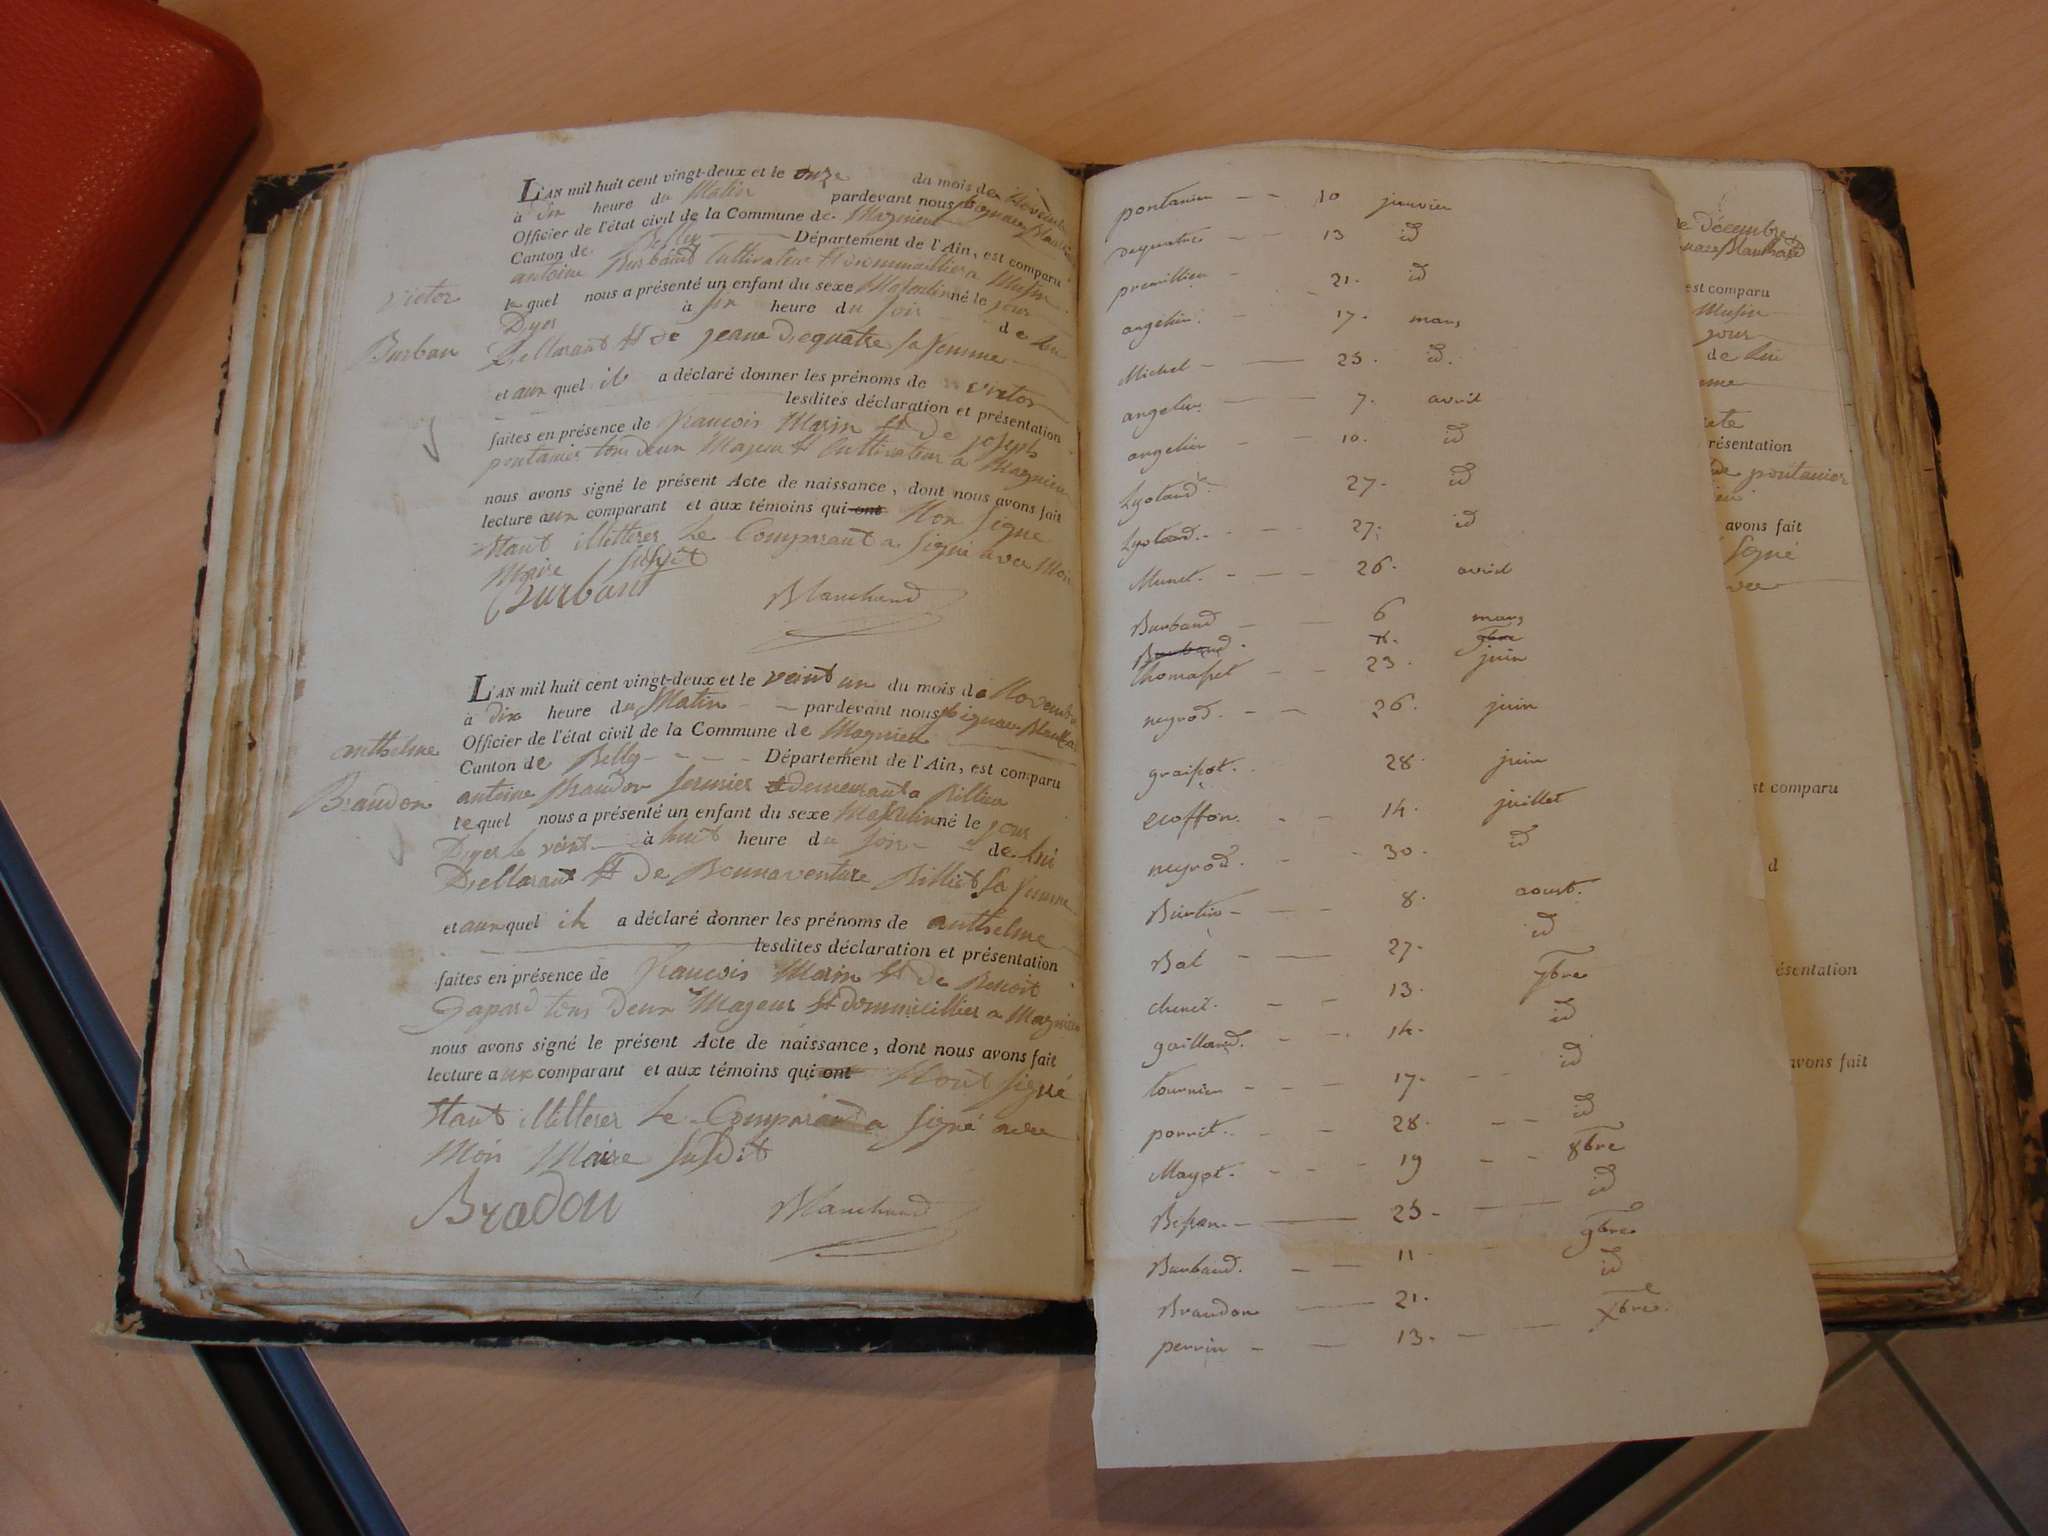 L'AN mil huit cent vingt-deux et le onze du mois de Novembre
à dix heure du Matin pardevant nous
Officier de l'état civil de la Commune de Magnieu
Canton de Belley Département de l'Ain, est comparu
antoine Burband Cultivateur a Musin
Victor
le quel nous a présenté un enfant du sexe Masculin né le jour
Dyer à six heure du soir de lui
Burban
Declarant et de jeane Dequatre sa femme
et auquel il a déclaré donner les prénoms de victor
lesdites déclaration et présentation
faites en présence de francois Marin et de joseph
pontanier tous deux Majeur et Cultivateur a Magnieu
nous avons signé le présent Acte de naissance, dont nous avons fait
lecture aux comparant et aux témoins qui ont Non signe
Etant illitterer Le Comparant a signé avec Moi
Maire susdit
Burbant
Blanchand
L'AN mil huit cent vingt-deux et le veint un du mois de Novembre
à dix heure du Matin pardevant nous
Officier de l'état civil de la Commune de Magnieu
anthelme
Canton de Belley Département de l'Ain, est comparu
Braudon
antoine Braudon fermier demeurant a Billieu
le quel nous a présenté un enfant du sexe Masculin né le jour
Dyer le veint à huit heure du soir de lui
Declarant et de Bonnaventure Billiet sa femme
et auxquel il a déclaré donner les prénoms de anthelme
lesdites déclaration et présentation
faites en présence de francois Marin et de Benoit
Gapard tous deux Majeur et dommicillier a Magnieu
nous avons signé le présent Acte de naissance, dont nous avons fait
lecture aux comparant et aux témoins qui ont Nont signé
Etant illitterer Le Comparant a signé avec
Moi Maire susdit
Bradon
Blanchand
pontanier 10 janvier
dequatre 13 id
premillieu 21. id
angelier 17. mars
Michel 25. id.
angelier 7. avril
angelier 10. id
Lyotard 27. id
Lyotard 27. id
Munet. 26. avril
Burband 6 mars
Burband. 9bre
thomasset 23. juin
neyrod. 26. juin
graisot. 28. juin
ecoffon. 14. juillet
neyrod. 30. id
Bertin 8. aoust.
Bal 27. id
chenet. 13. 7bre
gaillard. 14. id
tournier 17. id
porret. 28. id
Mayot. 19 8bre
Besson 25. id
Burband. 11 9bre
Braudon 21. id
perrin 13. Xbre.
de Décembre
est comparu
Musin
jour
de lui
femme
résentation
de pontanier
avons fait
signé
avec
st comparu
d
ésentation
avons fait